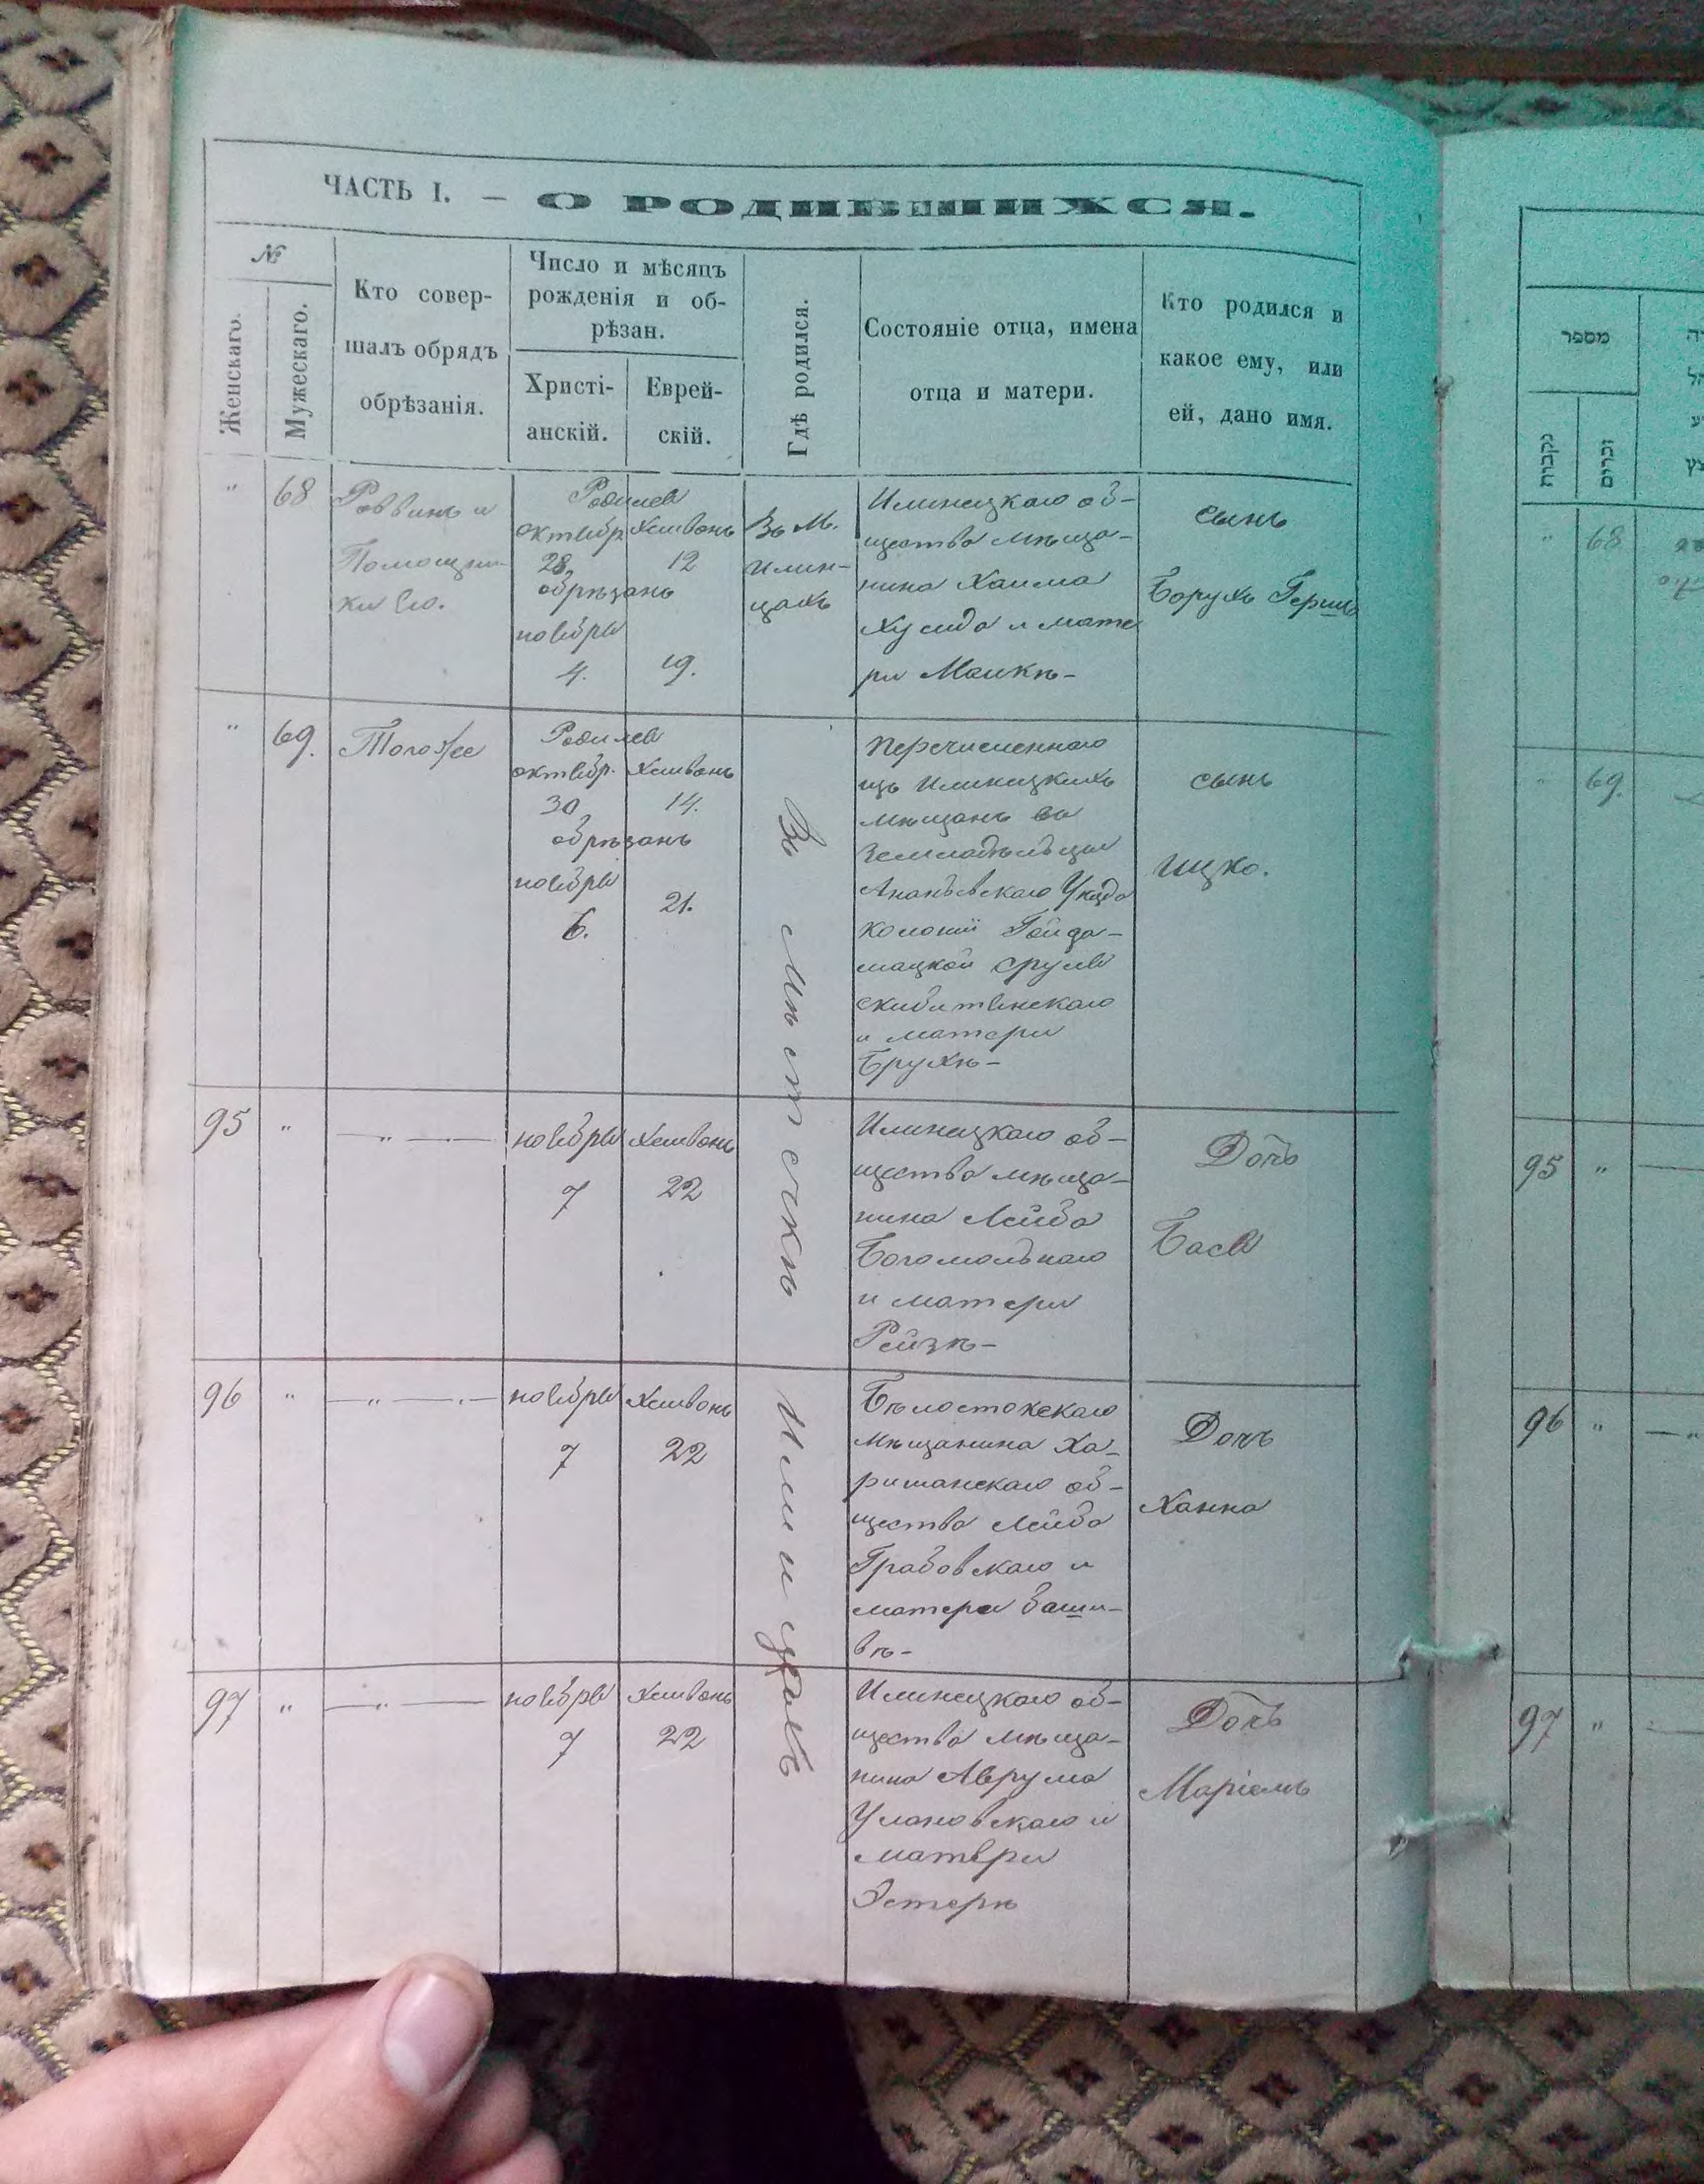 ЧАСТЬ I. — О РОДИВШИХСЯ.
№
Женскаго.
Мужескаго.
Кто совер-
шалъ обрядъ
обрѣзанія.
Число и мѣсяцъ
рожденія и об-
рѣзан.
Христі-
анскій.
Еврей-
скій.
Гдѣ родился.
Состояніе отца, имена
отца и матери.
Кто родился и
какое ему, или
ей, дано имя.
"
68
Раввинъ и
Помощни-
ки Его.
Родился
октября Хешвонъ
28 12
обрѣзанъ
ноября
4. 19.
Въ М.
Илин-
цахъ
Илинецкаго об-
щества мѣща-
нина Хаима
и мате
ри Малкѣ-
сынъ
Борухъ Гершъ
"
69.
Тогоже
Родился
октябр. Хешвонъ
30 14.
обрѣзанъ
ноября
6. 21.
Перечисленнаго
изъ Илинецкихъ
мѣщанъ во
Земледѣльцы
Ананьевскаго Уѣзда
колоніи Гайда-
мацкой Сруля
Скибитянскаго
и матери
Брухѣ-
сынъ
Ицко.
Въ Мѣстечкѣ Илинцахъ
95 " — " —
ноября Хешвонъ
7 22
Илинецкаго об-
щества мѣща-
нина Лейба
Богомольнаго
и матери
Рейзѣ-
Дочь
Бася
96 " — " —
ноября Хешвонъ
7 22
Бѣлостокскаго
мѣщанина Ха-
об-
щества Лейба
Грабовскаго и
матери Баши-
вѣ-
Дочь
Ханна
97 " — " —
ноября Хешвонъ
7 22
Илинецкаго об-
щества мѣща-
нина Аврума
Улановскаго и
матери
Эстерѣ
Дочь
Маріемъ
מספר
נקבות
זכרים
" 68
" 69.
95 " —
96 " — "
97 " —